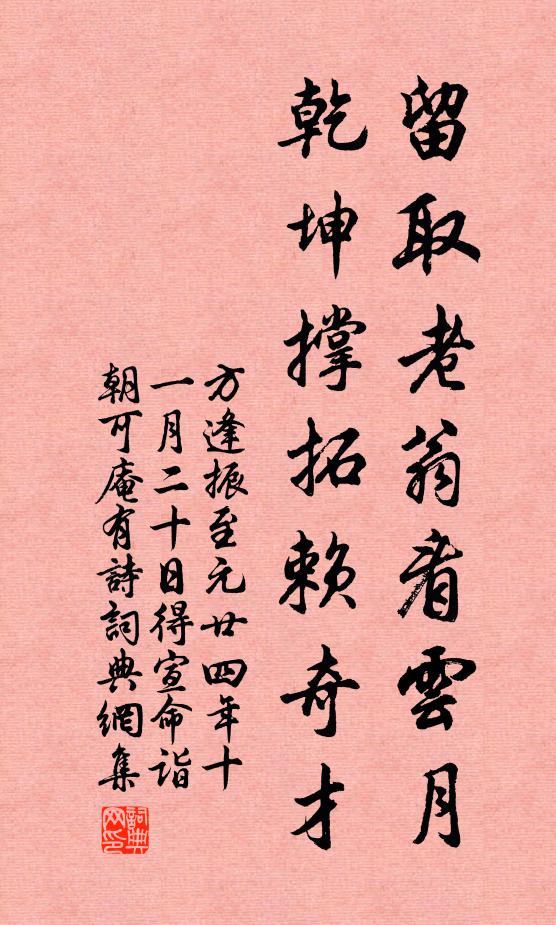 留取老翁看雲月
乾坤撑拓賴奇才
方逢振至元廿四年十
一月二十日得宣命詣
朝可庵有詩詞典網集
詞典网印